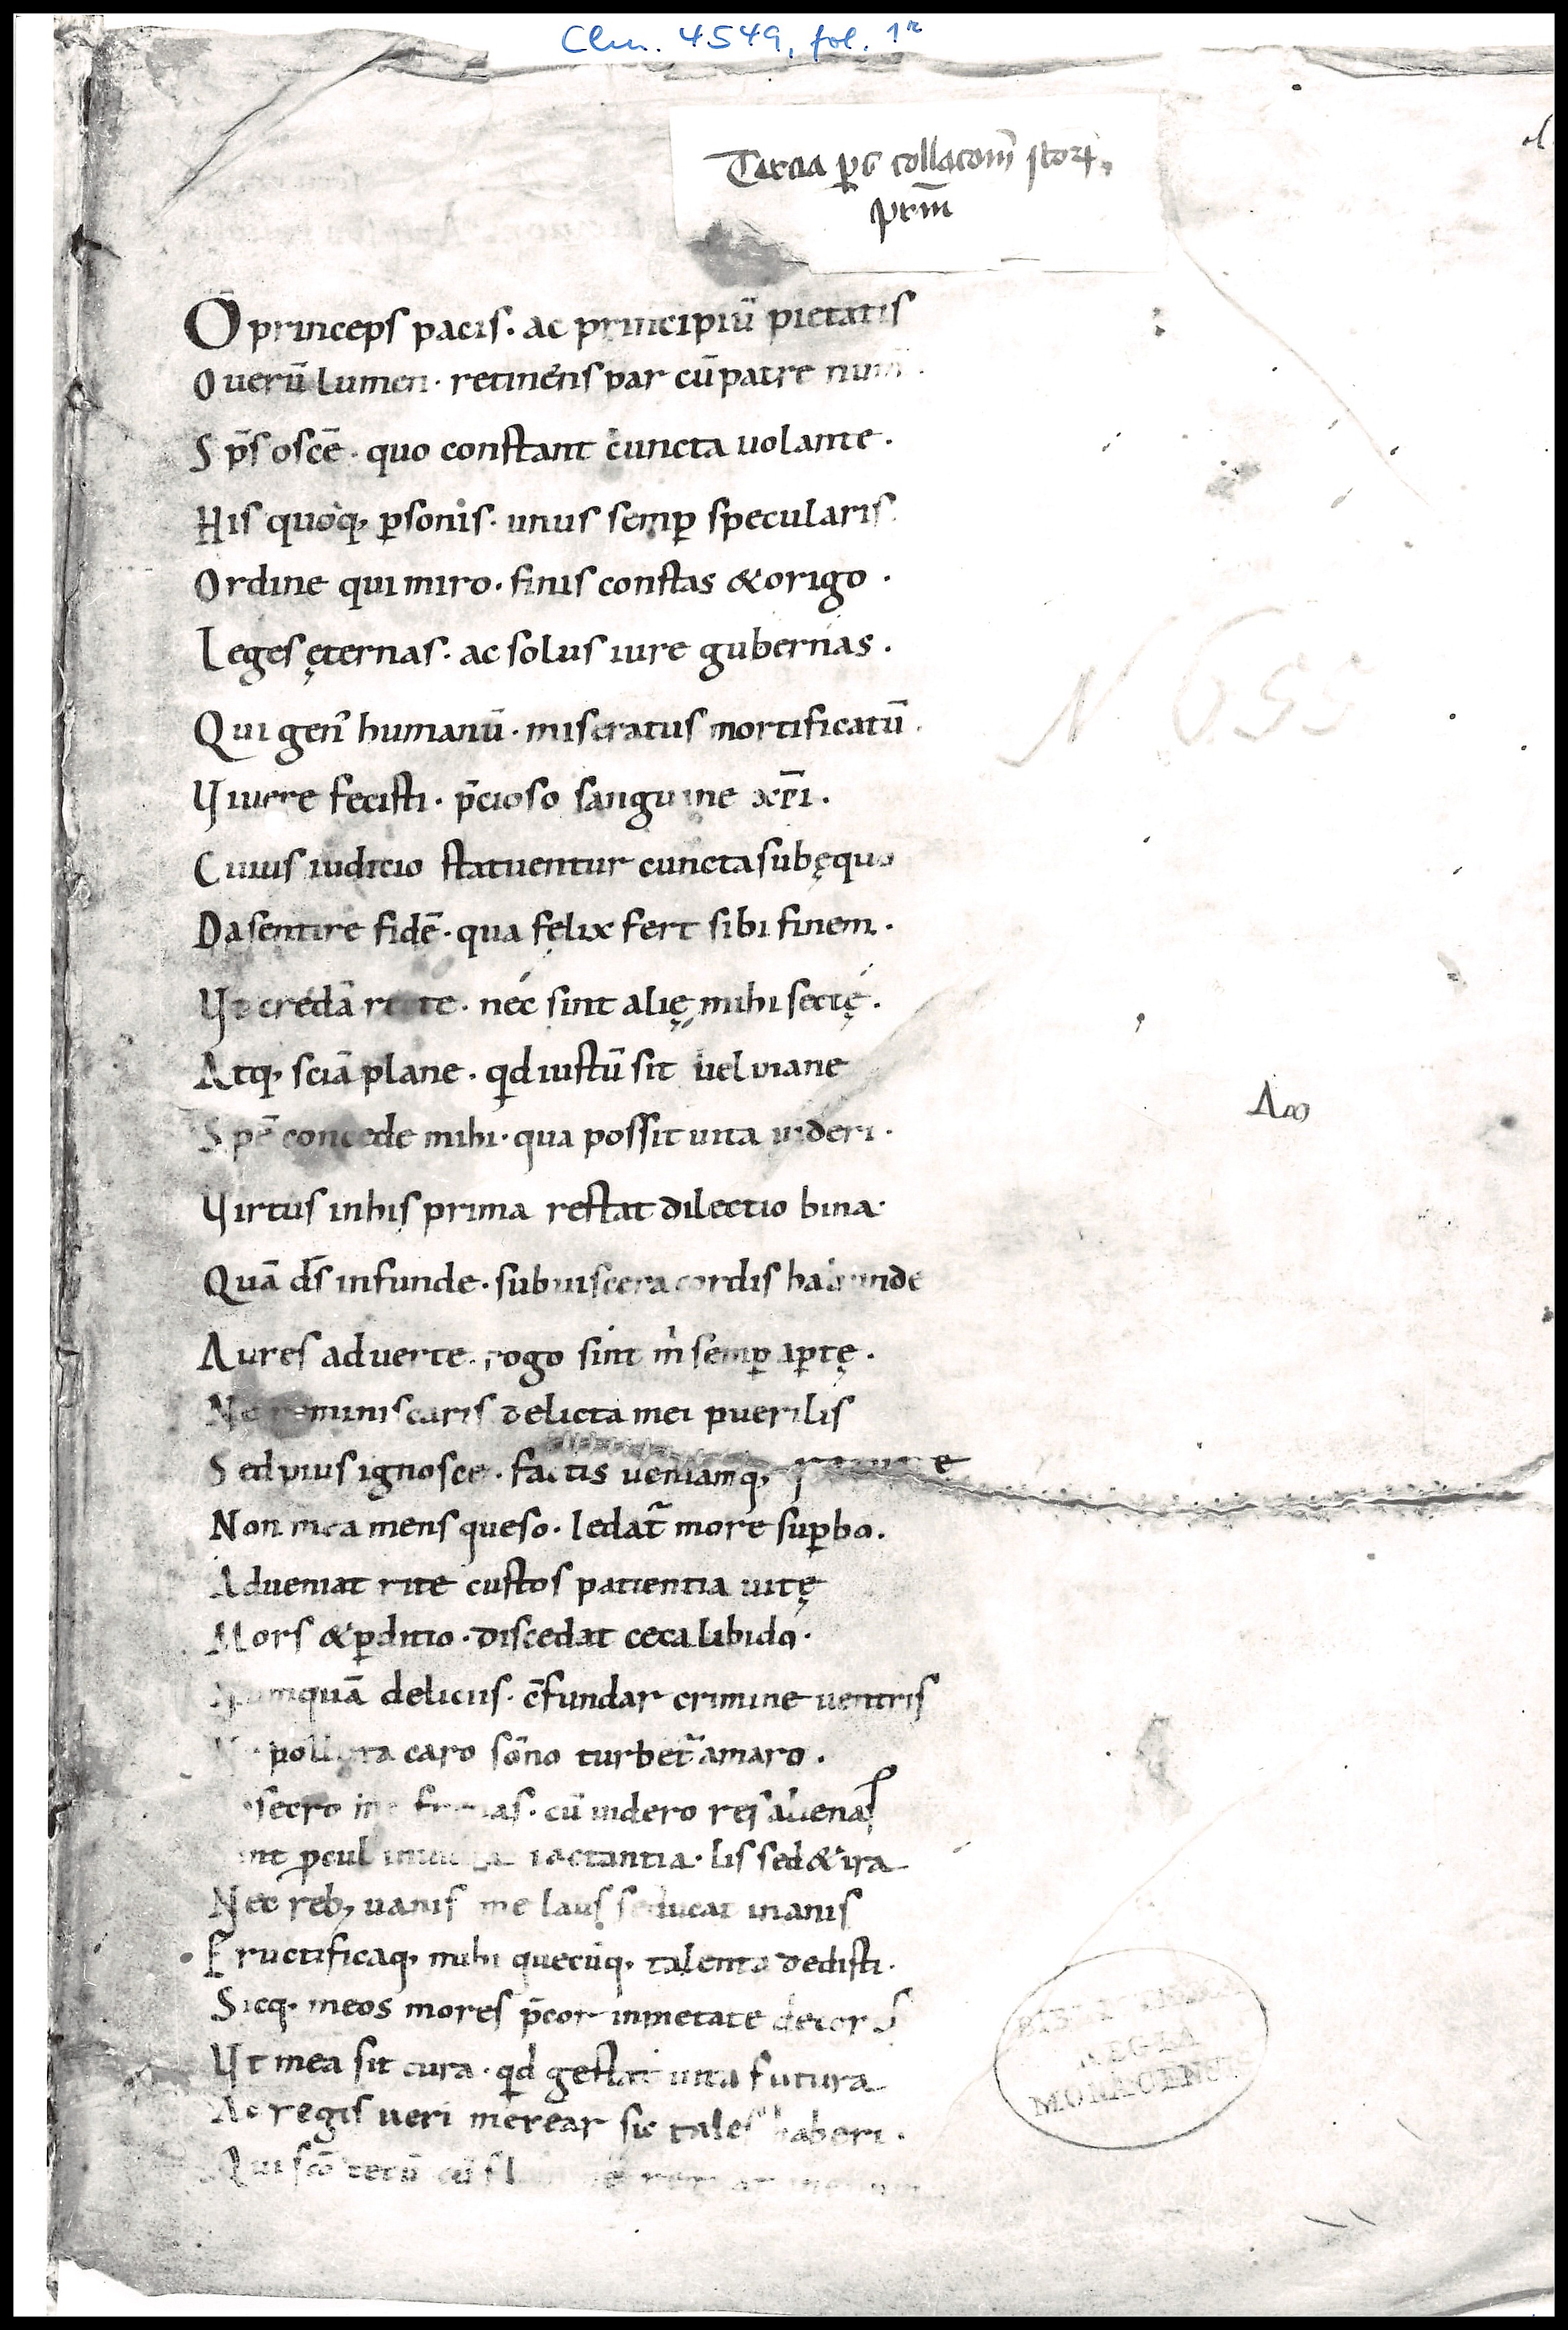 Clm. 4549, fol. 1r
Tercia ps collacom̄ stoꝝ
prm̄
O princeps pacis· ac principiū pietatis
O uerū lumen· retinens par cū patre
S ps̄ o scē· quo constant cuncta uolante·
His quoq; ꝑsonis· unus semꝑ specularis
Ordine qui miro· finis constas & origo·
Leges ęternas· ac solus iure gubernas·
Qui gen᷒ humanū· miseratus mortificatū·
Viuere fecisti· p̄cioso sanguine xp̄i·
Cuius iudicio statuentur cuncta sub ęquo
Da sentire fidē· qua felix fert sibi finem·
Vt credā recte· nec sint alię mihi sectę·
Atq; sciā plane· qd iustū sit uel inane
Spē concede mihi· qua possit uita uideri·
Virtus in his prima restat dilectio bina·
Quā ds̄ infunde· sub uiscera cordis habunde
Aures aduerte· rogo sint m̍ semꝑ aꝑtę·
Ne reminiscaris delicta mei puerilis
Sed pius ignosce· factis ueniamq;
Non mea mens queso· ledat᷑ more suꝑbo·
Adueniat rite custos patientia uitę
Mors & ꝑditio· discedat ceca libido·
Numquā deliciis· c̄fundar crimine uentris
polluta caro sōno turbet᷑ amaro·
cū uidero res alienas
ꝓcul iactantia· lis sed & ira
Nec reb; uanis me laus seducat inanis
Fructificaq; mihi quecūq; talenta dedisti·
Sicq; meos mores p̄cor in pietate decores
Vt mea sit cura· qd gestat uita futura
Ac regis ueri merear sic tales haberi·
Qui scō tecū cū
N 655
BIBLIOTHECA
REGIA
MONACENSIS